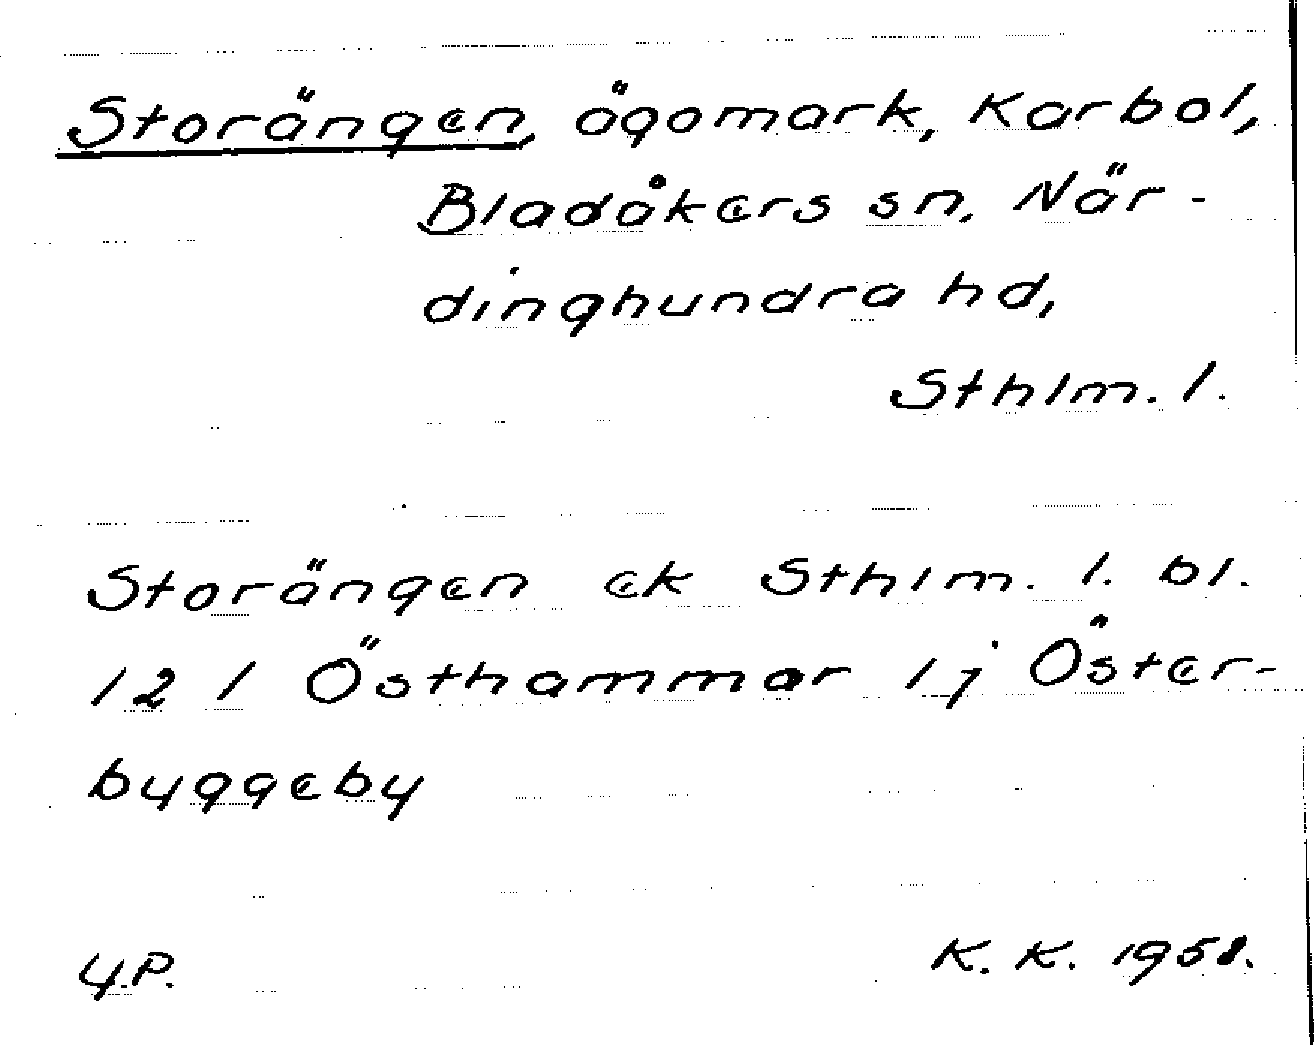 Storängen, ägomark, Karbol,
Bladåkers sn, När-
dinghundra hd,
Sthlm. l.
Storängen ek Sthlm. l. bl.
12 l Östhammar 1 j Öster-
byggeby
Y.P.
K. K. 1951.